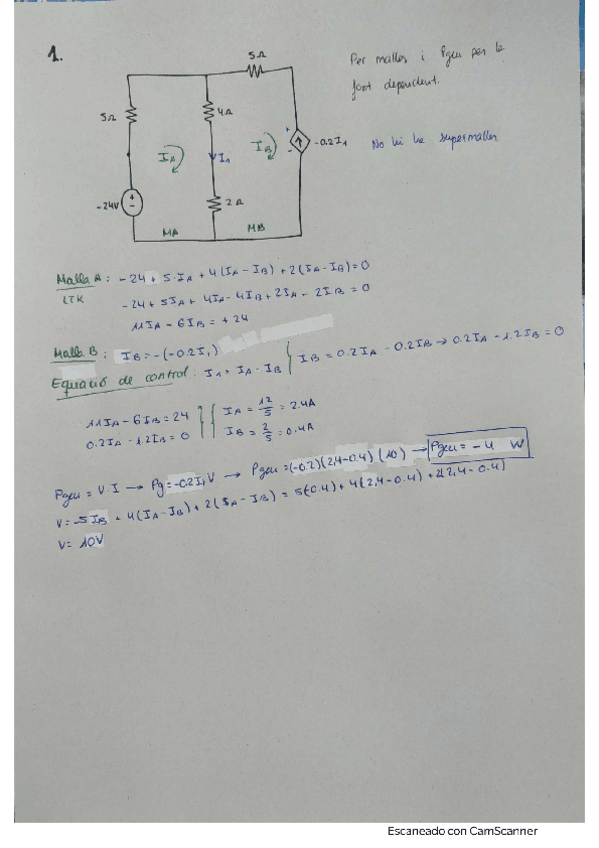 1.
5Ω
Per malles i Pgen per la
font dependent.
5Ω
4Ω
IA
I1
IB
-0.2I1
No hi ha supermalles
-24V
2Ω
MA
MB
Malla A: -24 + 5·IA + 4(IA-IB) + 2(IA-IB)=0
LTK
-24+5IA+4IA-4IB+2IA-2IB=0
11IA-6IB=+24
Malla B: IB=-(-0.2I1)
Equació de control: I1=IA-IB
IB=0.2IA-0.2IB→0.2IA-1.2IB=0
11IA-6IB=24
0.2IA-1.2IB=0
IA=12/5=2.4A
IB=2/5=0.4A
Pgen=V·I→Pg=-0.2I1V→Pgen=(-0.2)(2,4-0.4)(10)→Pgen=-4 W
V=-5IB+4(IA-IB)+2(IA-IB)=5(0.4)+4(2,4-0.4)+2(2,4-0.4)
V=10V
Escaneado con CamScanner